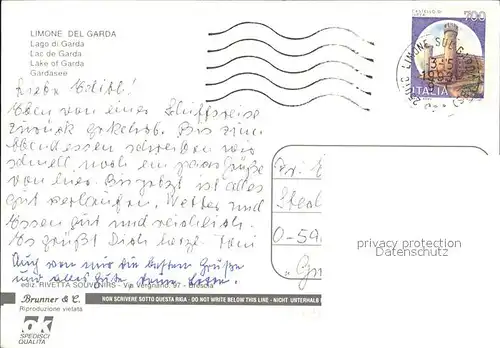 LIMONE DEL GARDA
Lago di Garda
Lac de Garda
Lake of Garda
Gardasee
700
ITALIA
Liebe Edith!
Eben von einer Schiffsreise
zurück gekehrt. Bis zum
Abendessen schreiben wir
schnell noch ein paar Grüße
von hier. Bis jetzt ist alles
gut verlaufen. Wetter und
Essen gut und reichlich.
Es grüßt Dich herzl. Toni
Auch von mir die besten Grüße
und alles Gute Deine
ediz. RIVETTA SOUVENIRS - Via Vergnano, 97 -
Brunner & C.
Riproduzione vietata
NON SCRIVERE SOTTO QUESTA RIGA - DO NOT WRITE BELOW THIS LINE - NICHT UNTERHALB
OK
SPEDISCI
QUALITÀ
O-59
privacy protection
Datenschutz